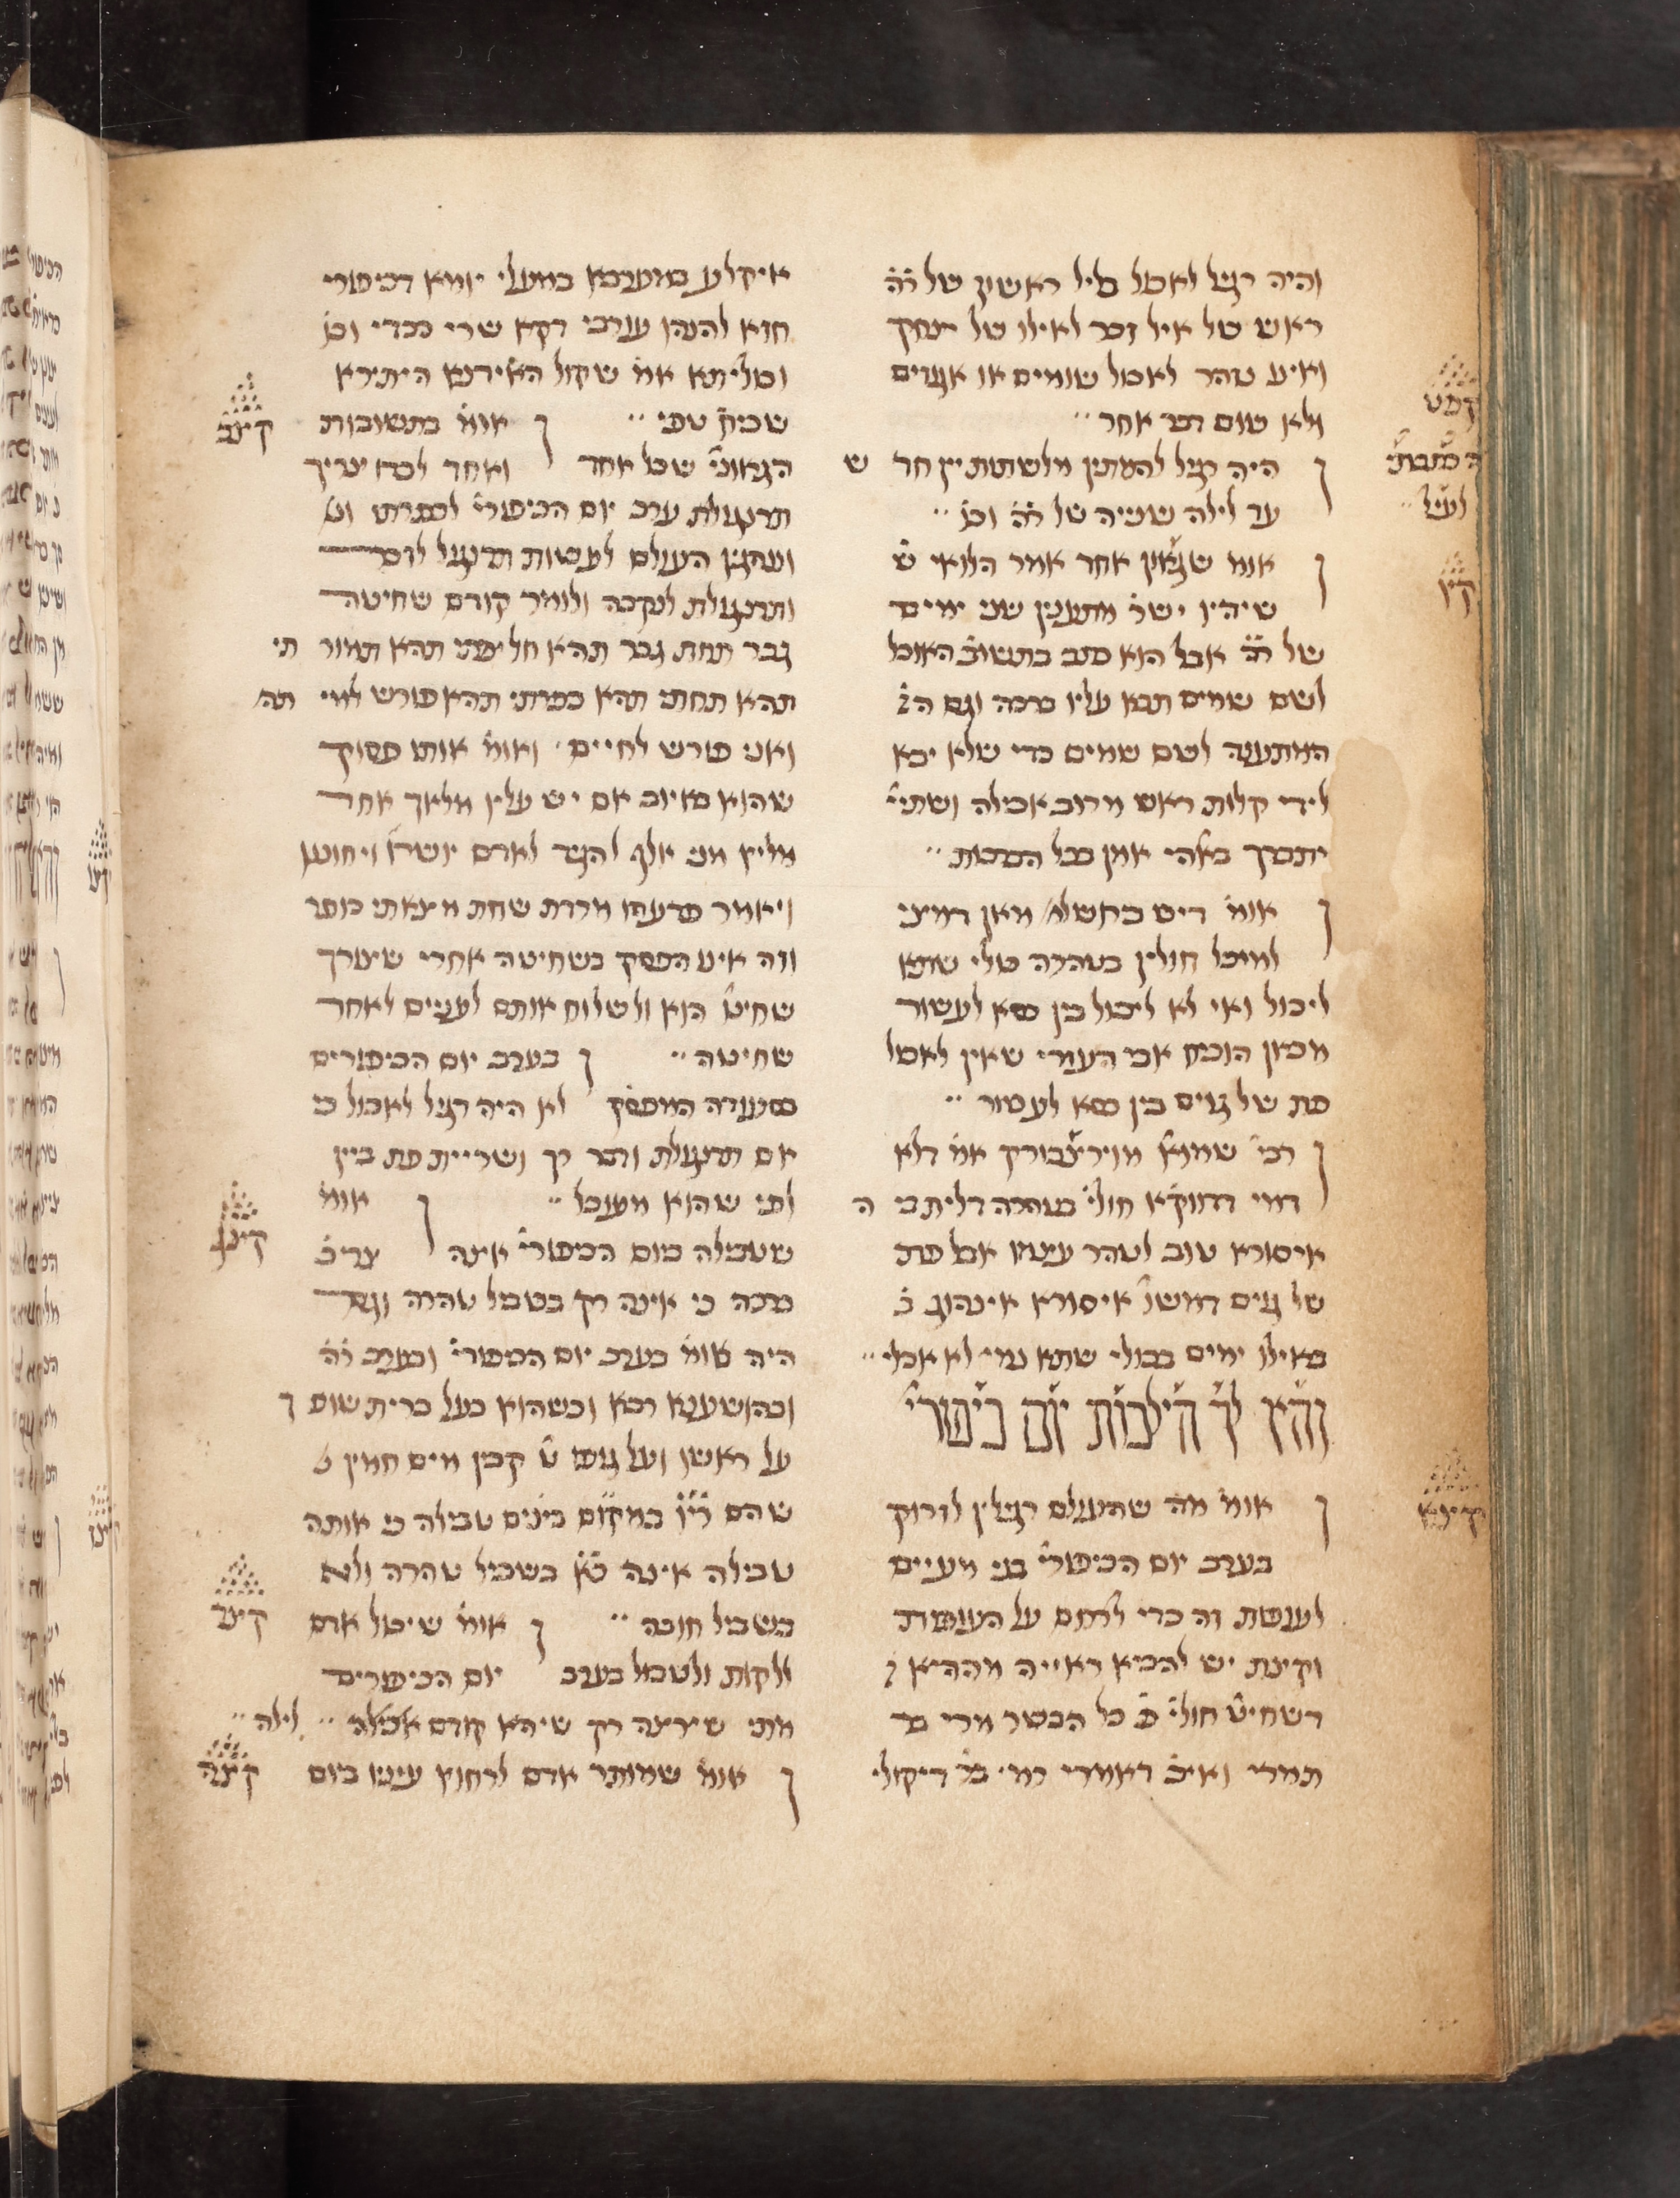 והיה רגיל לאכול בליל ראשון של ר̇ה̇
ראש של איל זכר לאילו של יצחק
ואינו טהר לאכול שומים או אגוזים
ולא שום דבר אחר
היה רגיל להמתין מלשתות יין חד ש
עד לילה שנייה של ר̇ה̇ וכו'
אומ' שגאון אחד אמר הלואי ש
שיהיו ישר' מתענין שני ימים
של ר̇ה̇ אבל הוא כתב בתשוב' האוכל
לשם שמים תבא עליו ברכה וגם ה
המתענה לשם שמים כדי שלא יבא
לידי קלות ראש מרוב אכילה ושתי'
יתברך באלהי אמן בכל הברכות
אומ' מאן דמצי
למיכל חולין בטהרה כולי שתא
ליכול ואי לא ליכול בין כסא לעשור
מכאן הוכיח אבי העזרי שאין לאכול
פת של גוים בין כסא לעשור
רבי' שמוא' מוירצבורק אמ' דלא
דמי דדווקא חולי' בטהרה דלית בי ה
איסורא טוב לטהר עצמו אבל פת
של גוים דמשו' איסורא אי נהוג ב
באילו ימים בכולי שתא נמי לא אכלי
והא לך הילכות יום כיפורי'
אומ' מה שהעולם רגילין לזרוק
בערב יום הכיפורי' בני מעיים
לעופות זה כדי לרחם על העופות
וקצת יש להביא ראייה מההיא ד
דשחיט' חולי' פ' כל הבשר מרי בר
תמרי ואיכ' דאמרי רמי בר דיקולי
קפט
הכתבתי
לעיל
קצ
קצא
איקלע במעלי יומא דכיפורי
חזא להנהו עורבי דקא שדי כבדי וכו'
וכוליתא אמ' שקול האידנא היתירא
שכיח טפי אומ' בתשובות
הגאוני' שכל אחד ואחד לבדו צריך
תרנגולת ערב יום הכיפורי' לכפרתו וכו'
ומנהגין העולם לעשות תרנגול לזכר
ותרנגולת לנקבה ולומר קודם שחיטה
גבר תחת גבר תהא חליפתי תהא תמור תי
תהא תחתי תהא כפרתי תהא פורש למי תה
ואני פורש לחיים ואומ' אותו פסוק
שהוא באיוב אם יש עליו מלאך אחד
מליץ מני אלף להגיד לאדם יושרו ויחוננו
ויאמר פדעהו מרדת שחת מצאתי כופר
וזה אינו הפסק בשחיטה אחרי שצורך
שחיט' הוא ולשלוח אותם לעניים לאחר
שחיטה בערב יום הכיפורים
סעודה המפסק' לא היה רגיל לאכול כי
אם תרנגולת ודבר רך ושריית פת ביין
לפי שהוא מעוכל אומ'
שטבילה ביום הכיפורי' אינה צריכ'
ברכה כי אינה רק בשביל טהרה וגם
היה אומ' בערב יום הכיפורי' ובערב ר̇ה̇
ובהושענא רבא וכשהוא בעל ברית שופ ך
על ראשו ועל גופו ט' קבין מים חמין
שהם במקום טבילה כי אותה
טבילה אינה בא' בשביל טהרה ולא
בשביל חובה אומ' שיכול אדם
ללקות ולטבול בערב יום הכיפורים
מתי שירצה רק שיהא קודם אכילה לילה
אומ' שמותר אדם לרחוץ עצמו ביום
קצב
קצג
קצד
קצה